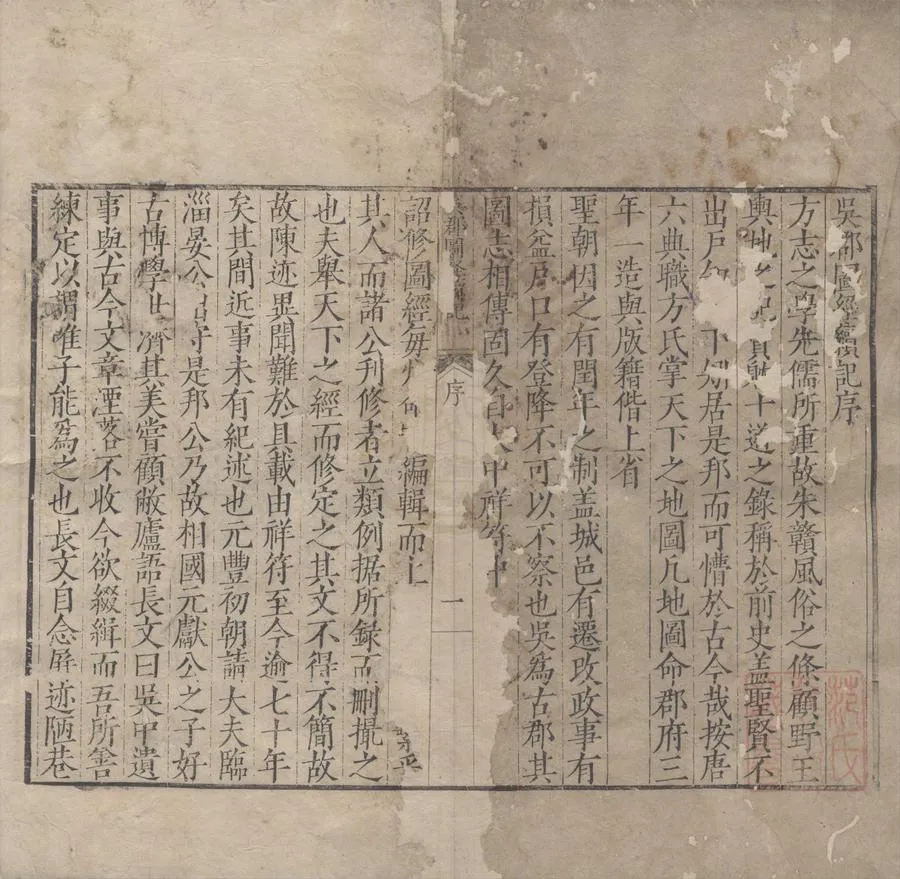 吳郡圖經續記序
方志之學先儒所重故朱贛風俗之條顧野王
輿地之記賈躭十道之錄稱於前史盖聖賢不
出戶知天下矧居是邦而可懵於古今哉按唐
六典職方氏掌天下之地圖凡地圖命郡府三
年一造與版籍偕上省
聖朝因之有閏年之制盖城邑有遷改政事有
損益戶口有登降不可以不察也吳爲古郡其
圖志相傳固久自大中祥符中
郡圖經續記
序
一
詔修圖經每州命編輯而上
其人而諸公刊修者立類例据所錄而删撮之
也夫舉天下之經而修定之其文不得不簡故
故陳迹異聞難於具載由祥符至今逾七十年
矣其間近事未有紀述也元豐初朝請大夫臨
淄晏公出守是邦公乃故相國元獻公之子好
古博學世濟其美嘗顧敝廬語長文曰吳中遺
事與古今文章湮落不收今欲綴緝而吾所善
練定以謂唯子能爲之也長文自念屏迹陋巷
范氏